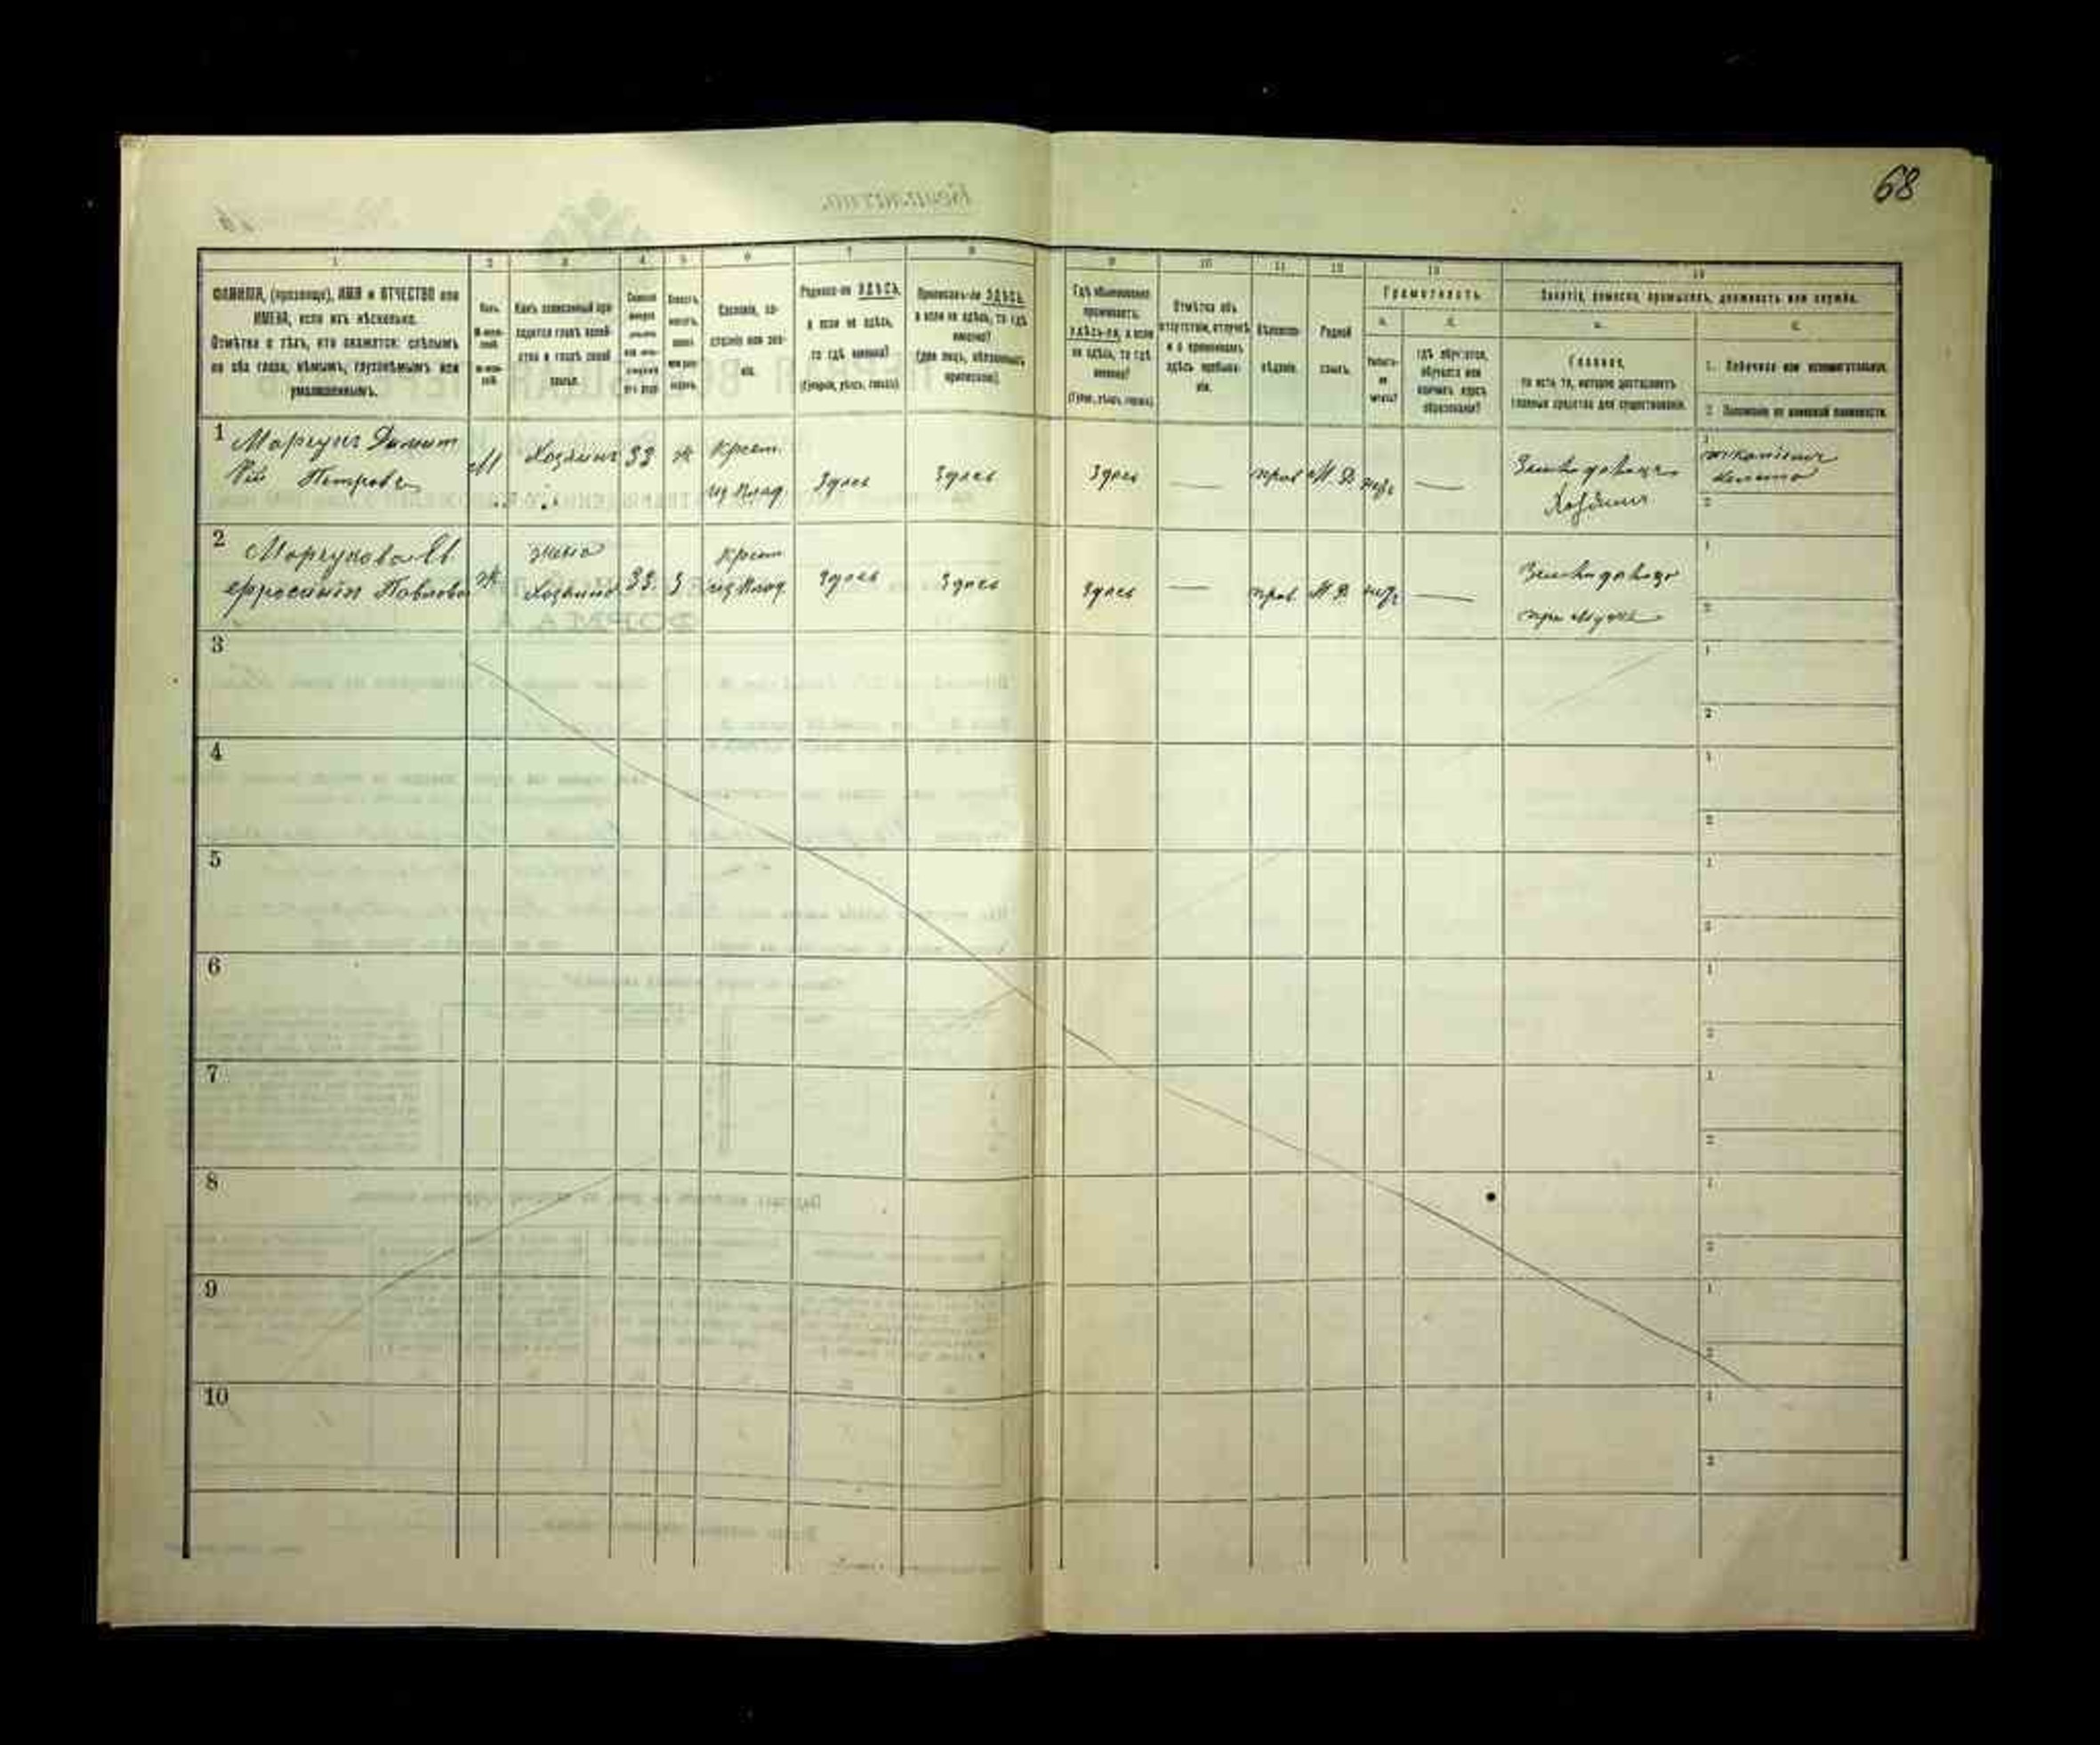 68
1 2 3 4 5 6 7 8 9 10 11 12 13 14
ФАМИЛІЯ, (прозвище), ИМЯ и ОТЧЕСТВО или
ИМЕНА, если ихъ нѣсколько.
Отмѣтка о тѣхъ, кто окажется: слѣпымъ
на оба глаза, нѣмымъ, глухонѣмымъ или
умалишеннымъ.
Полъ.
Какъ записанный при-
ходится главѣ хозяй-
ства и главѣ своей
семьи.
Сословіе, со-
стояніе или зва-
ніе.
Родился-ли ЗДѢСЬ,
а если не здѣсь,
то гдѣ именно?
(Губернія, уѣздъ, городъ)
Приписанъ-ли ЗДѢСЬ,
а если не здѣсь, то гдѣ
именно?
(для лицъ, обязанныхъ
припискою).
Гдѣ обыкновенно
проживаетъ:
здѣсь-ли, а если
не здѣсь, то гдѣ
именно?
(Губер., уѣздъ, городъ)
Отмѣтка объ
отсутствіи, отлучкѣ
и о временномъ
здѣсь пребыва-
ніи.
Вѣроиспо-
вѣданіе.
Родной
языкъ.
Грамотность.
а. б.
Умѣетъ-
ли
читать?
гдѣ обучается,
обучался или
кончилъ курсъ
образованія?
Занятіе, ремесло, промыселъ, должность или служба.
а. б.
Главное,
то есть то, которое доставляетъ
главныя средства для существованія.
1. Побочное или вспомогательное.
2. Положеніе по воинской повинности.
1 Моргунъ Димит
рій Петровъ
М
Хозяинъ
33
ж
Крест.
из влад.
Здѣсь
Здѣсь
Здѣсь
—
прав
М. Р.
—
Земледѣлецъ
Хозяинъ
1
2
2 Моргунова Ев
фросинія Павлова
ж
жена
Хозяина
33.
З
Крест
из влад.
Здѣсь
Здѣсь
Здѣсь
—
прав.
М. Р.
—
при мужѣ
1
2
3
1
2
4
1
2
5
1
2
6
1
2
7
1
2
8
1
2
9
1
2
10
1
2